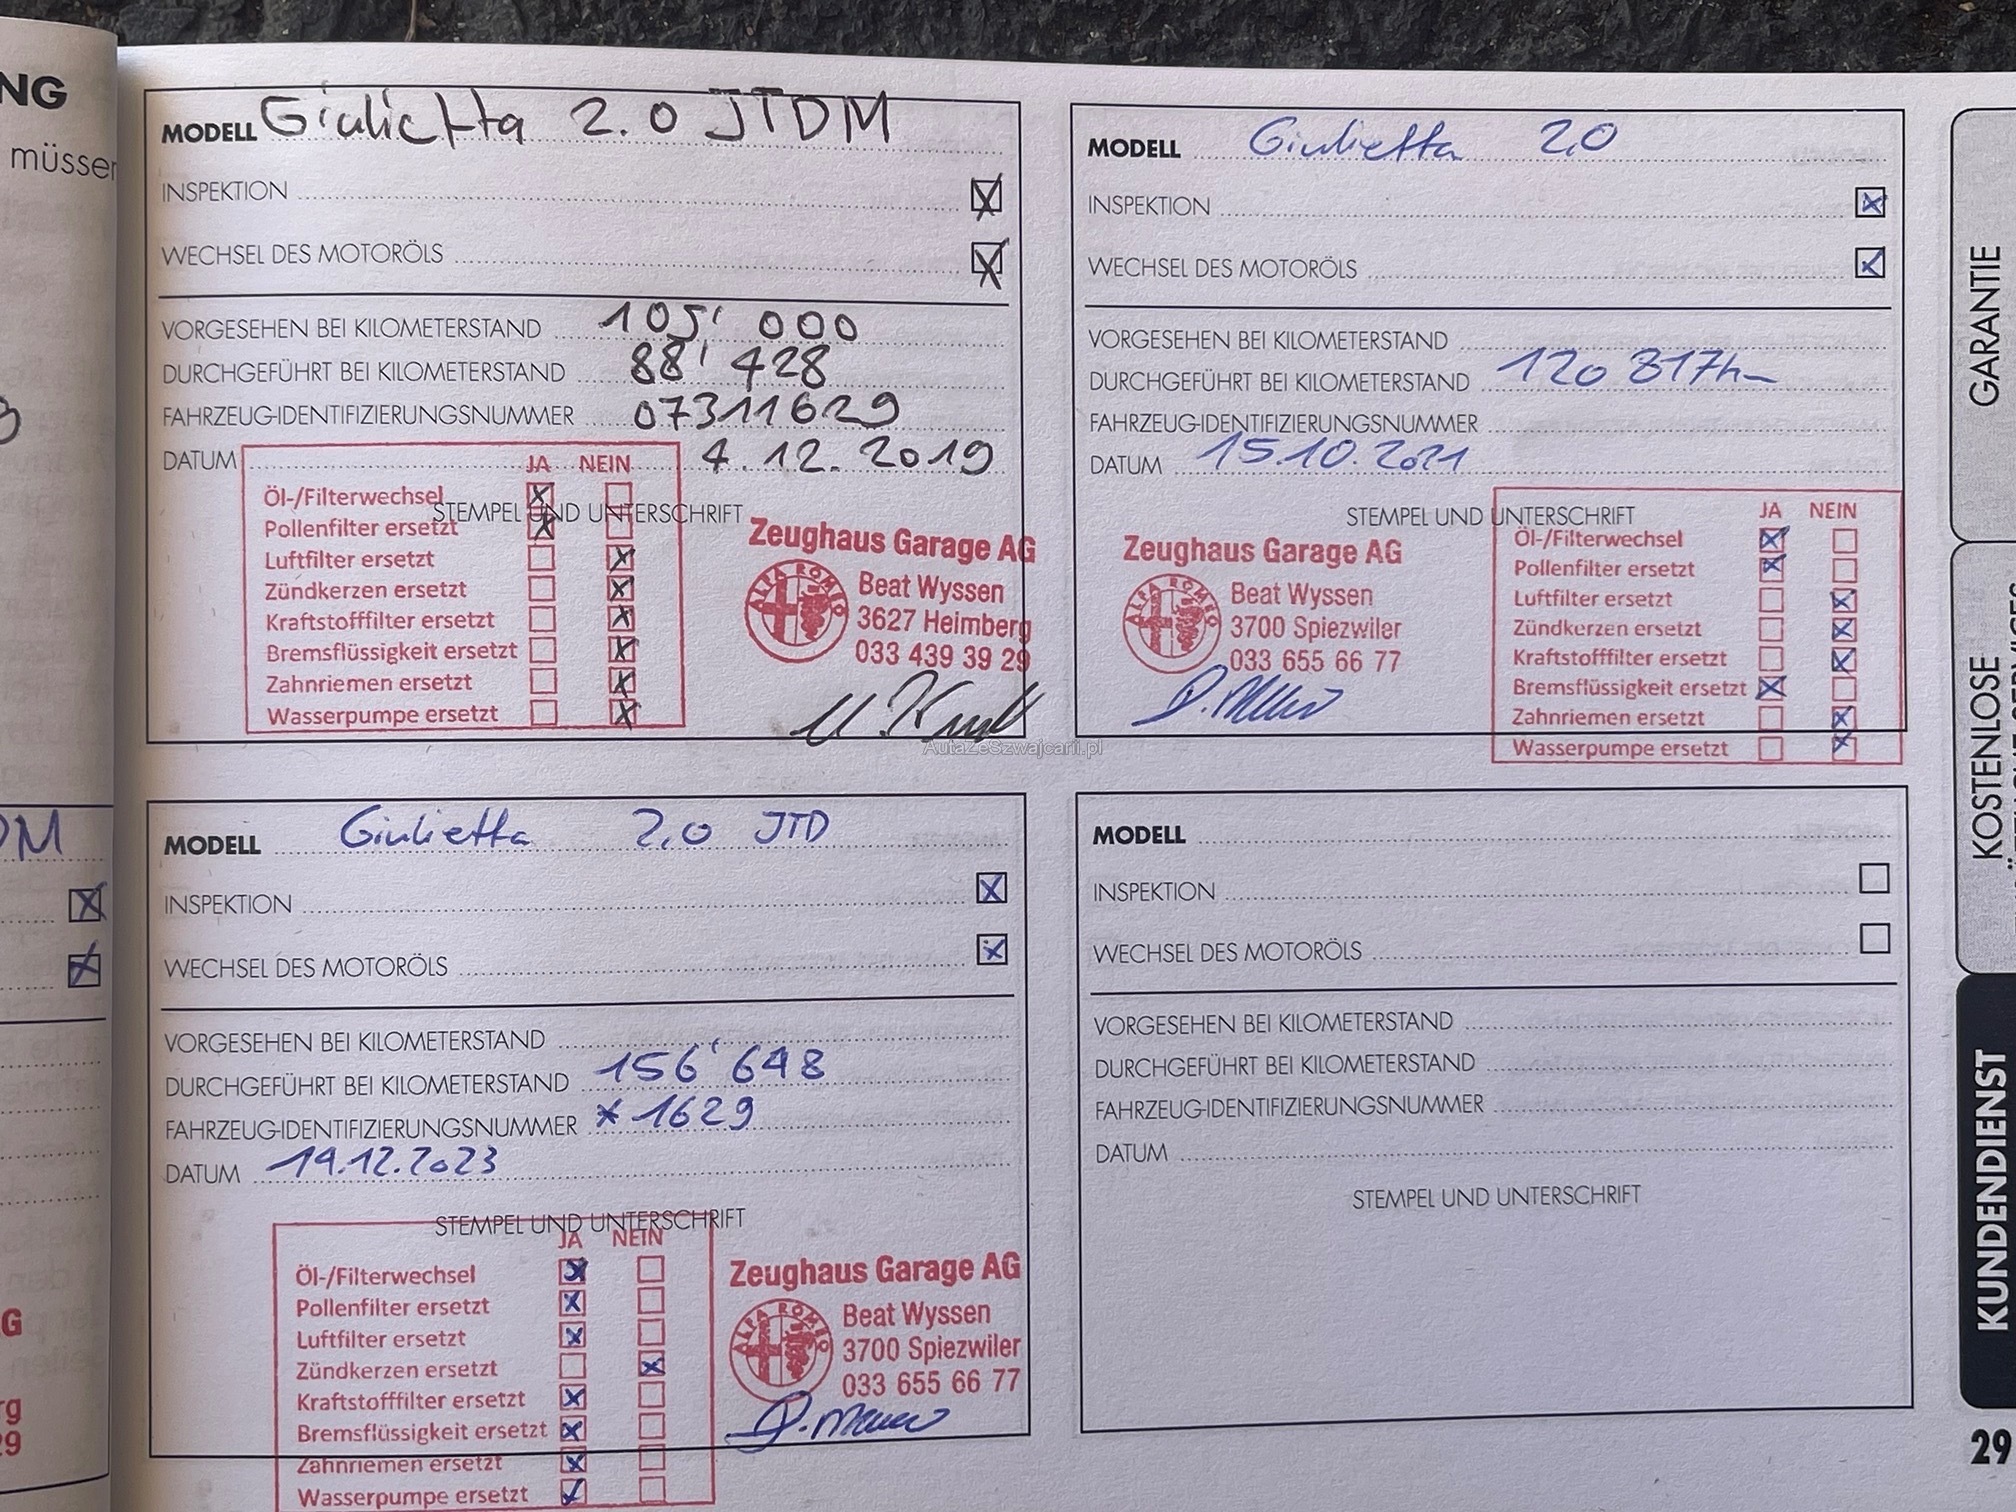 NG
müssen
DM
G
rg
29
MODELL Giulietta 2.0 JTDM
INSPEKTION
WECHSEL DES MOTORÖLS
VORGESEHEN BEI KILOMETERSTAND 105' 000
DURCHGEFÜHRT BEI KILOMETERSTAND 88' 428
FAHRZEUG-IDENTIFIZIERUNGSNUMMER 07311629
DATUM 4.12.2019
STEMPEL UND UNTERSCHRIFT
JA NEIN
Öl-/Filterwechsel
Pollenfilter ersetzt
Luftfilter ersetzt
Zündkerzen ersetzt
Kraftstofffilter ersetzt
Bremsflüssigkeit ersetzt
Zahnriemen ersetzt
Wasserpumpe ersetzt
Zeughaus Garage AG
ALFA ROMEO
Beat Wyssen
3627 Heimberg
033 439 39 29
MODELL Giulietta 2.0
INSPEKTION
WECHSEL DES MOTORÖLS
VORGESEHEN BEI KILOMETERSTAND
DURCHGEFÜHRT BEI KILOMETERSTAND 120 817km
FAHRZEUG-IDENTIFIZIERUNGSNUMMER
DATUM 15.10.2021
STEMPEL UND UNTERSCHRIFT
Zeughaus Garage AG
ALFA ROMEO
Beat Wyssen
3700 Spiezwiler
033 655 66 77
JA NEIN
Öl-/Filterwechsel
Pollenfilter ersetzt
Luftfilter ersetzt
Zündkerzen ersetzt
Kraftstofffilter ersetzt
Bremsflüssigkeit ersetzt
Zahnriemen ersetzt
Wasserpumpe ersetzt
AutaZeSzwajcarii.pl
MODELL Giulietta 2,0 JTD
INSPEKTION
WECHSEL DES MOTORÖLS
VORGESEHEN BEI KILOMETERSTAND
DURCHGEFÜHRT BEI KILOMETERSTAND 156' 648
FAHRZEUG-IDENTIFIZIERUNGSNUMMER *1629
DATUM 14.12.2023
STEMPEL UND UNTERSCHRIFT
JA NEIN
Öl-/Filterwechsel
Pollenfilter ersetzt
Luftfilter ersetzt
Zündkerzen ersetzt
Kraftstofffilter ersetzt
Bremsflüssigkeit ersetzt
Zahnriemen ersetzt
Wasserpumpe ersetzt
Zeughaus Garage AG
ALFA ROMEO
Beat Wyssen
3700 Spiezwiler
033 655 66 77
MODELL
INSPEKTION
WECHSEL DES MOTORÖLS
VORGESEHEN BEI KILOMETERSTAND
DURCHGEFÜHRT BEI KILOMETERSTAND
FAHRZEUG-IDENTIFIZIERUNGSNUMMER
DATUM
STEMPEL UND UNTERSCHRIFT
GARANTIE
KOSTENLOSE
KUNDENDIENST
29